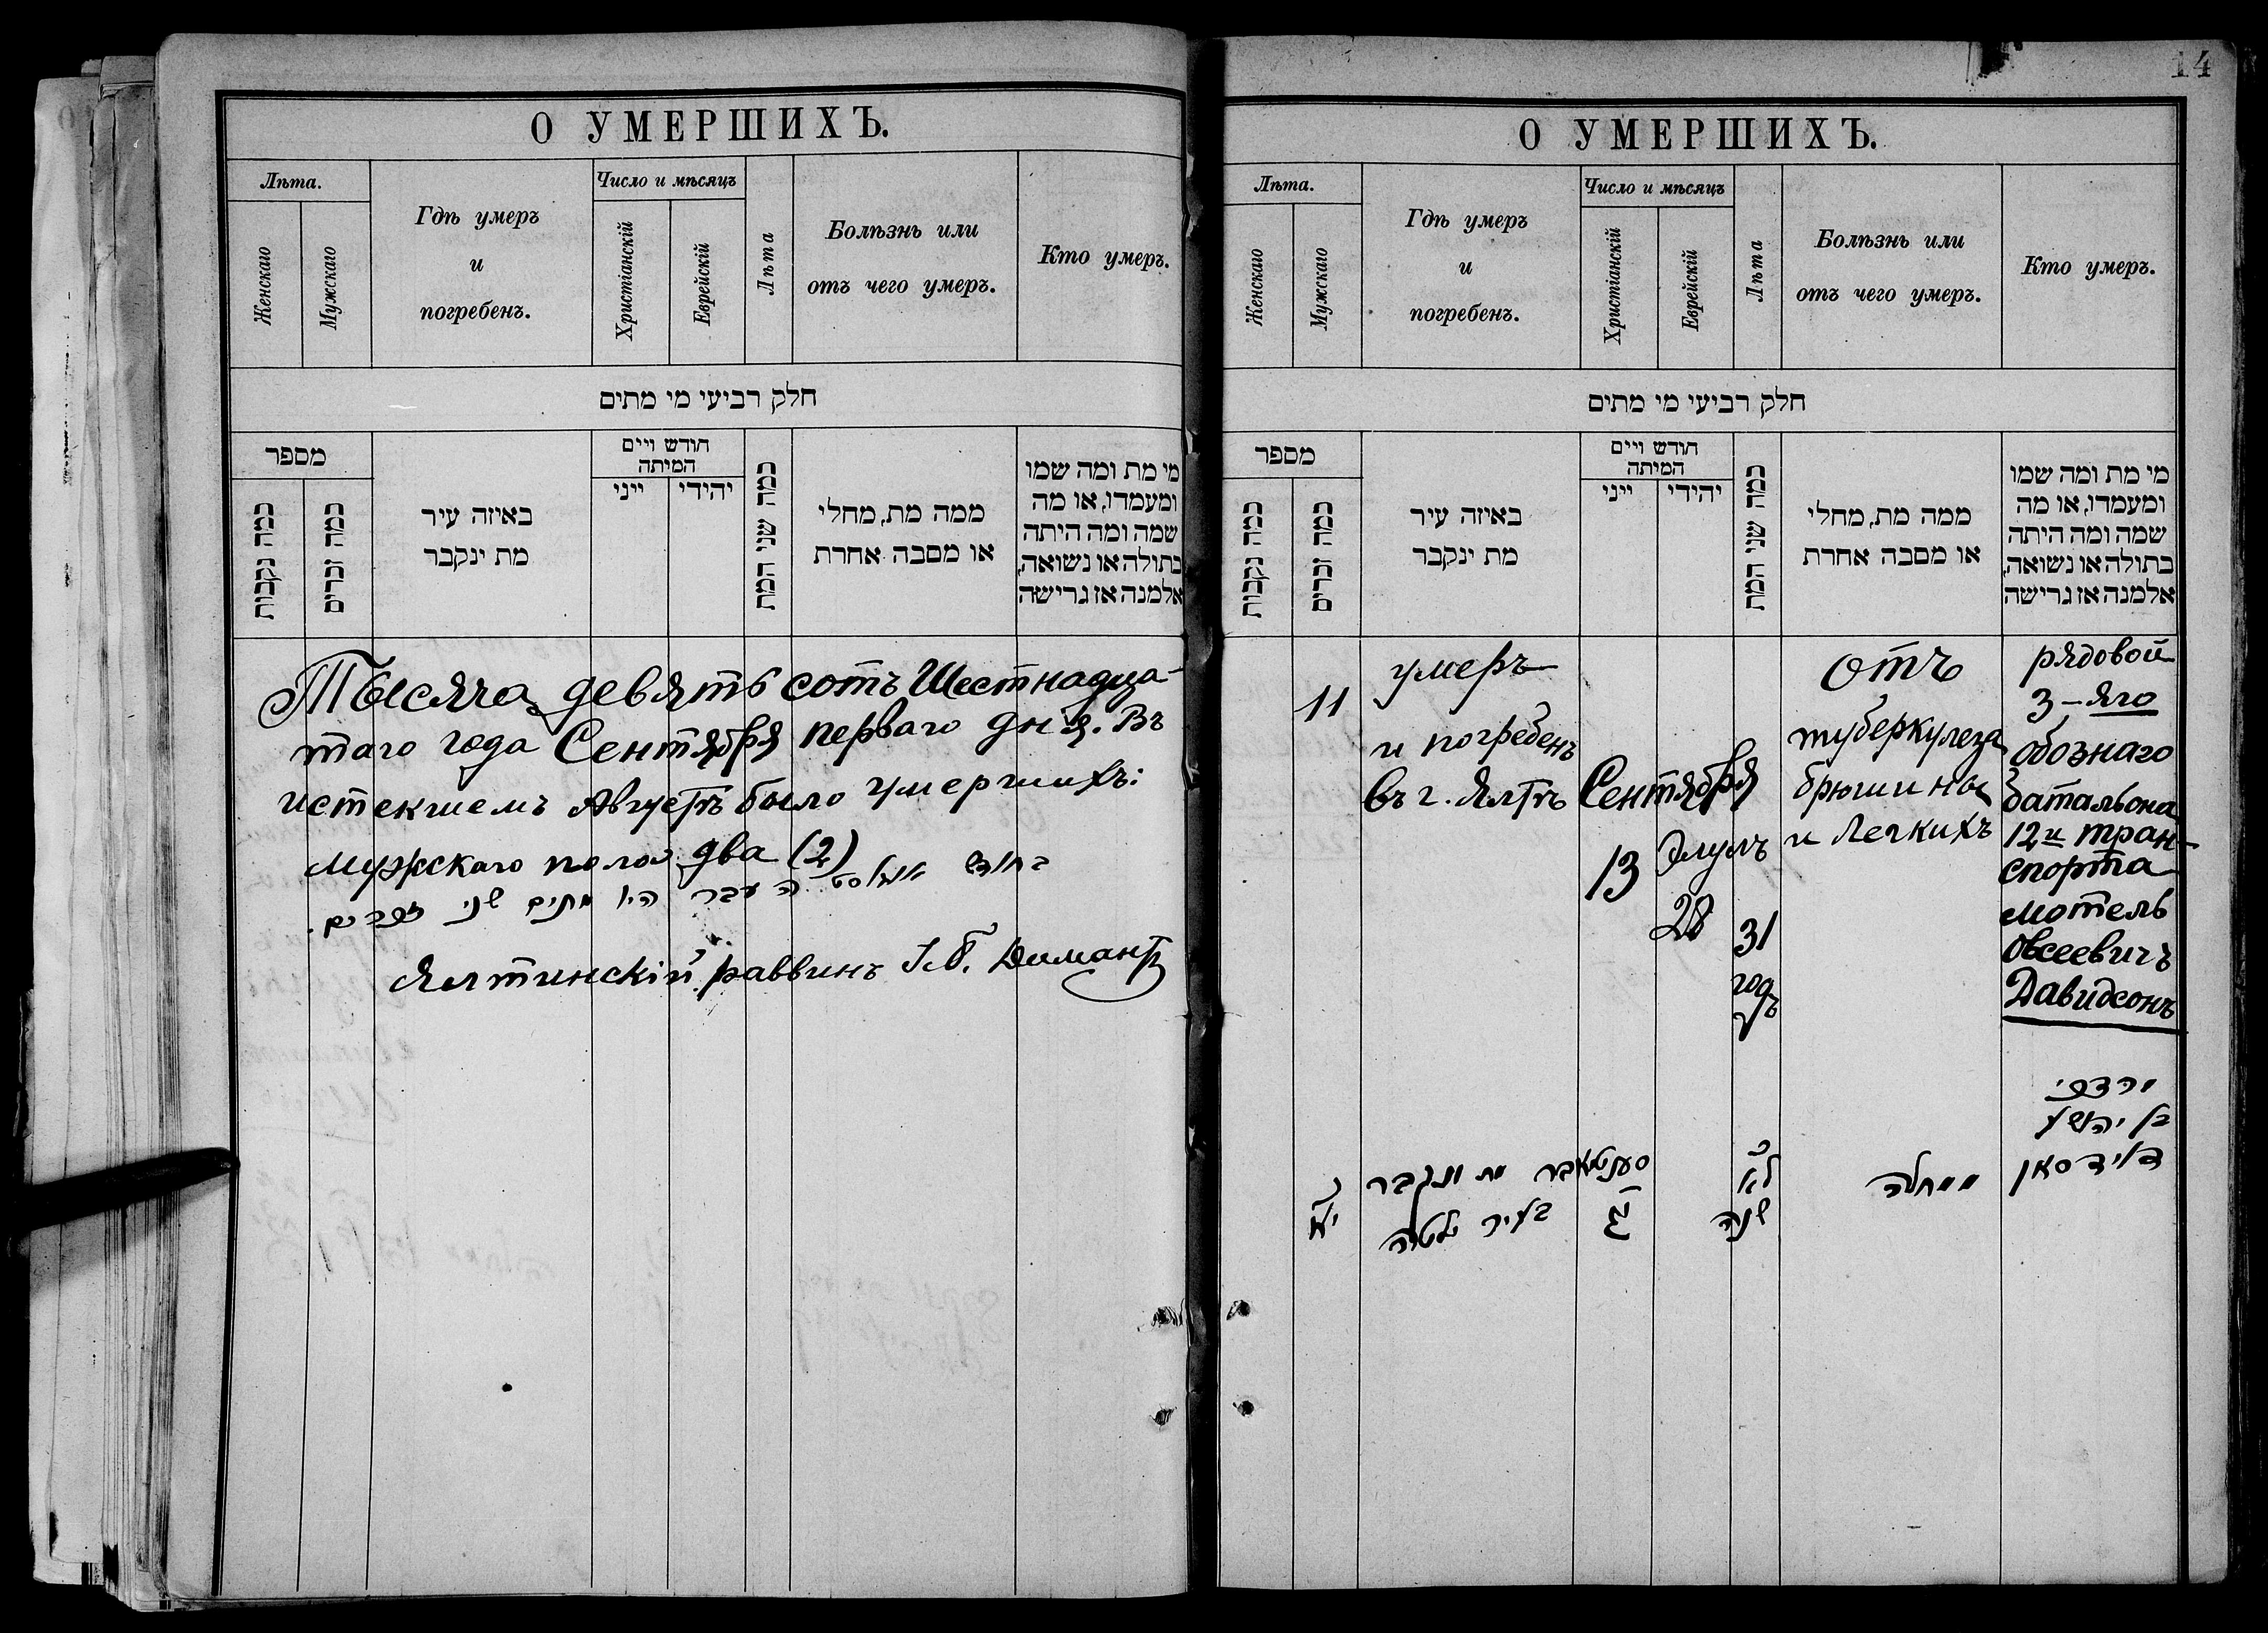 О УМЕРШИХЪ.
Лѣта.
Женскаго
Мужскаго
Гдѣ умеръ
и
погребенъ.
Число и мѣсяцъ
Христіанскій
Еврейскій
Лѣта
Болѣзнь или
отъ чего умеръ.
Кто умеръ.
חלק רביעי מי מתים
מספר
כמה נקבות
כמה זכרים
באיזה עיר
מת ינקבר
חודש ויים
המיתה
ייני
יהידי
כמה שני המת
ממה מת, מחלי
או מסבה אחרת
מי מת ומה שמו
ומעמדו, או מה
שמה ומה היתה
בתולה או נשואה,
אלמנה אז גרישה
Тысяча девять сотъ Шестнадца-
таго года Сентября перваго дня. Въ
истекшемъ Августѣ было умершихъ:
мужскаго пола два (2)
בחודש אווגוסט העבר היו מתים שני זכרים.
Ялтинскій раввинъ І. Б. Димантъ
14
О УМЕРШИХЪ.
Лѣта.
Женскаго
Мужскаго
Гдѣ умеръ
и
погребенъ.
Число и мѣсяцъ
Христіанскій
Еврейскій
Лѣта
Болѣзнь или
отъ чего умеръ.
Кто умеръ.
חלק רביעי מי מתים
מספר
כמה נקבות
כמה זכרים
באיזה עיר
מת ינקבר
חודש ויים
המיתה
ייני
יהידי
כמה שני המת
ממה מת, מחלי
או מסבה אחרת
מי מת ומה שמו
ומעמדו, או מה
שמה ומה היתה
בתולה או נשואה,
אלמנה אז גרישה
11
умеръ
и погребенъ
въ г. Ялтѣ
Сентября
13
Элулъ
28
31
годъ
отъ
туберкулеза
брюшины
и легкихъ
рядовой
3-яго
обознаго
баталіона
12й тран-
спорта
Мотель
Овсеевичъ
Давидсонъ
מרדכי
בן יהושע
דוידסאן
ממחלה
לא
שנה
סענטאבר
מת ונקבר
בעיר ילטה
יא